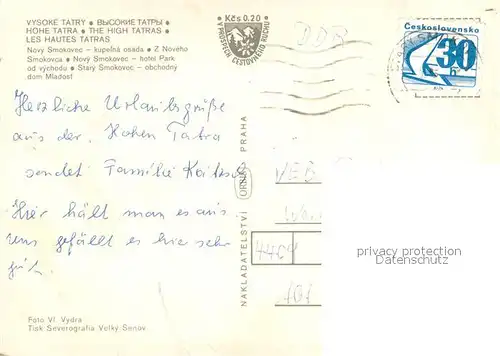 VYSOKÉ TATRY ● ВЫСОКИЕ ТАТРЫ ●
HOHE TATRA ● THE HIGH TATRAS ●
LES HAUTES TATRAS
Nový Smokovec – kúpeľná osada ● Z Nového
Smokovca ● Nový Smokovec – hotel Park
od východu ● Starý Smokovec – obchodný
dom Mladosť
Kčs 0,20
V PROSPĚCH CESTOVNÍHO RUCHU
DDR
Československo
30
h
Herzliche Urlaubsgrüße
aus der Hohen Tatra
sendet Familie
Hier hält man es aus
uns gefällt es hier sehr
gut.
VEB
440
701
NAKLADATELSTVÍ ORBIS PRAHA
privacy protection
Datenschutz
Foto Vl. Vydra
Tisk Severografia Velký Šenov